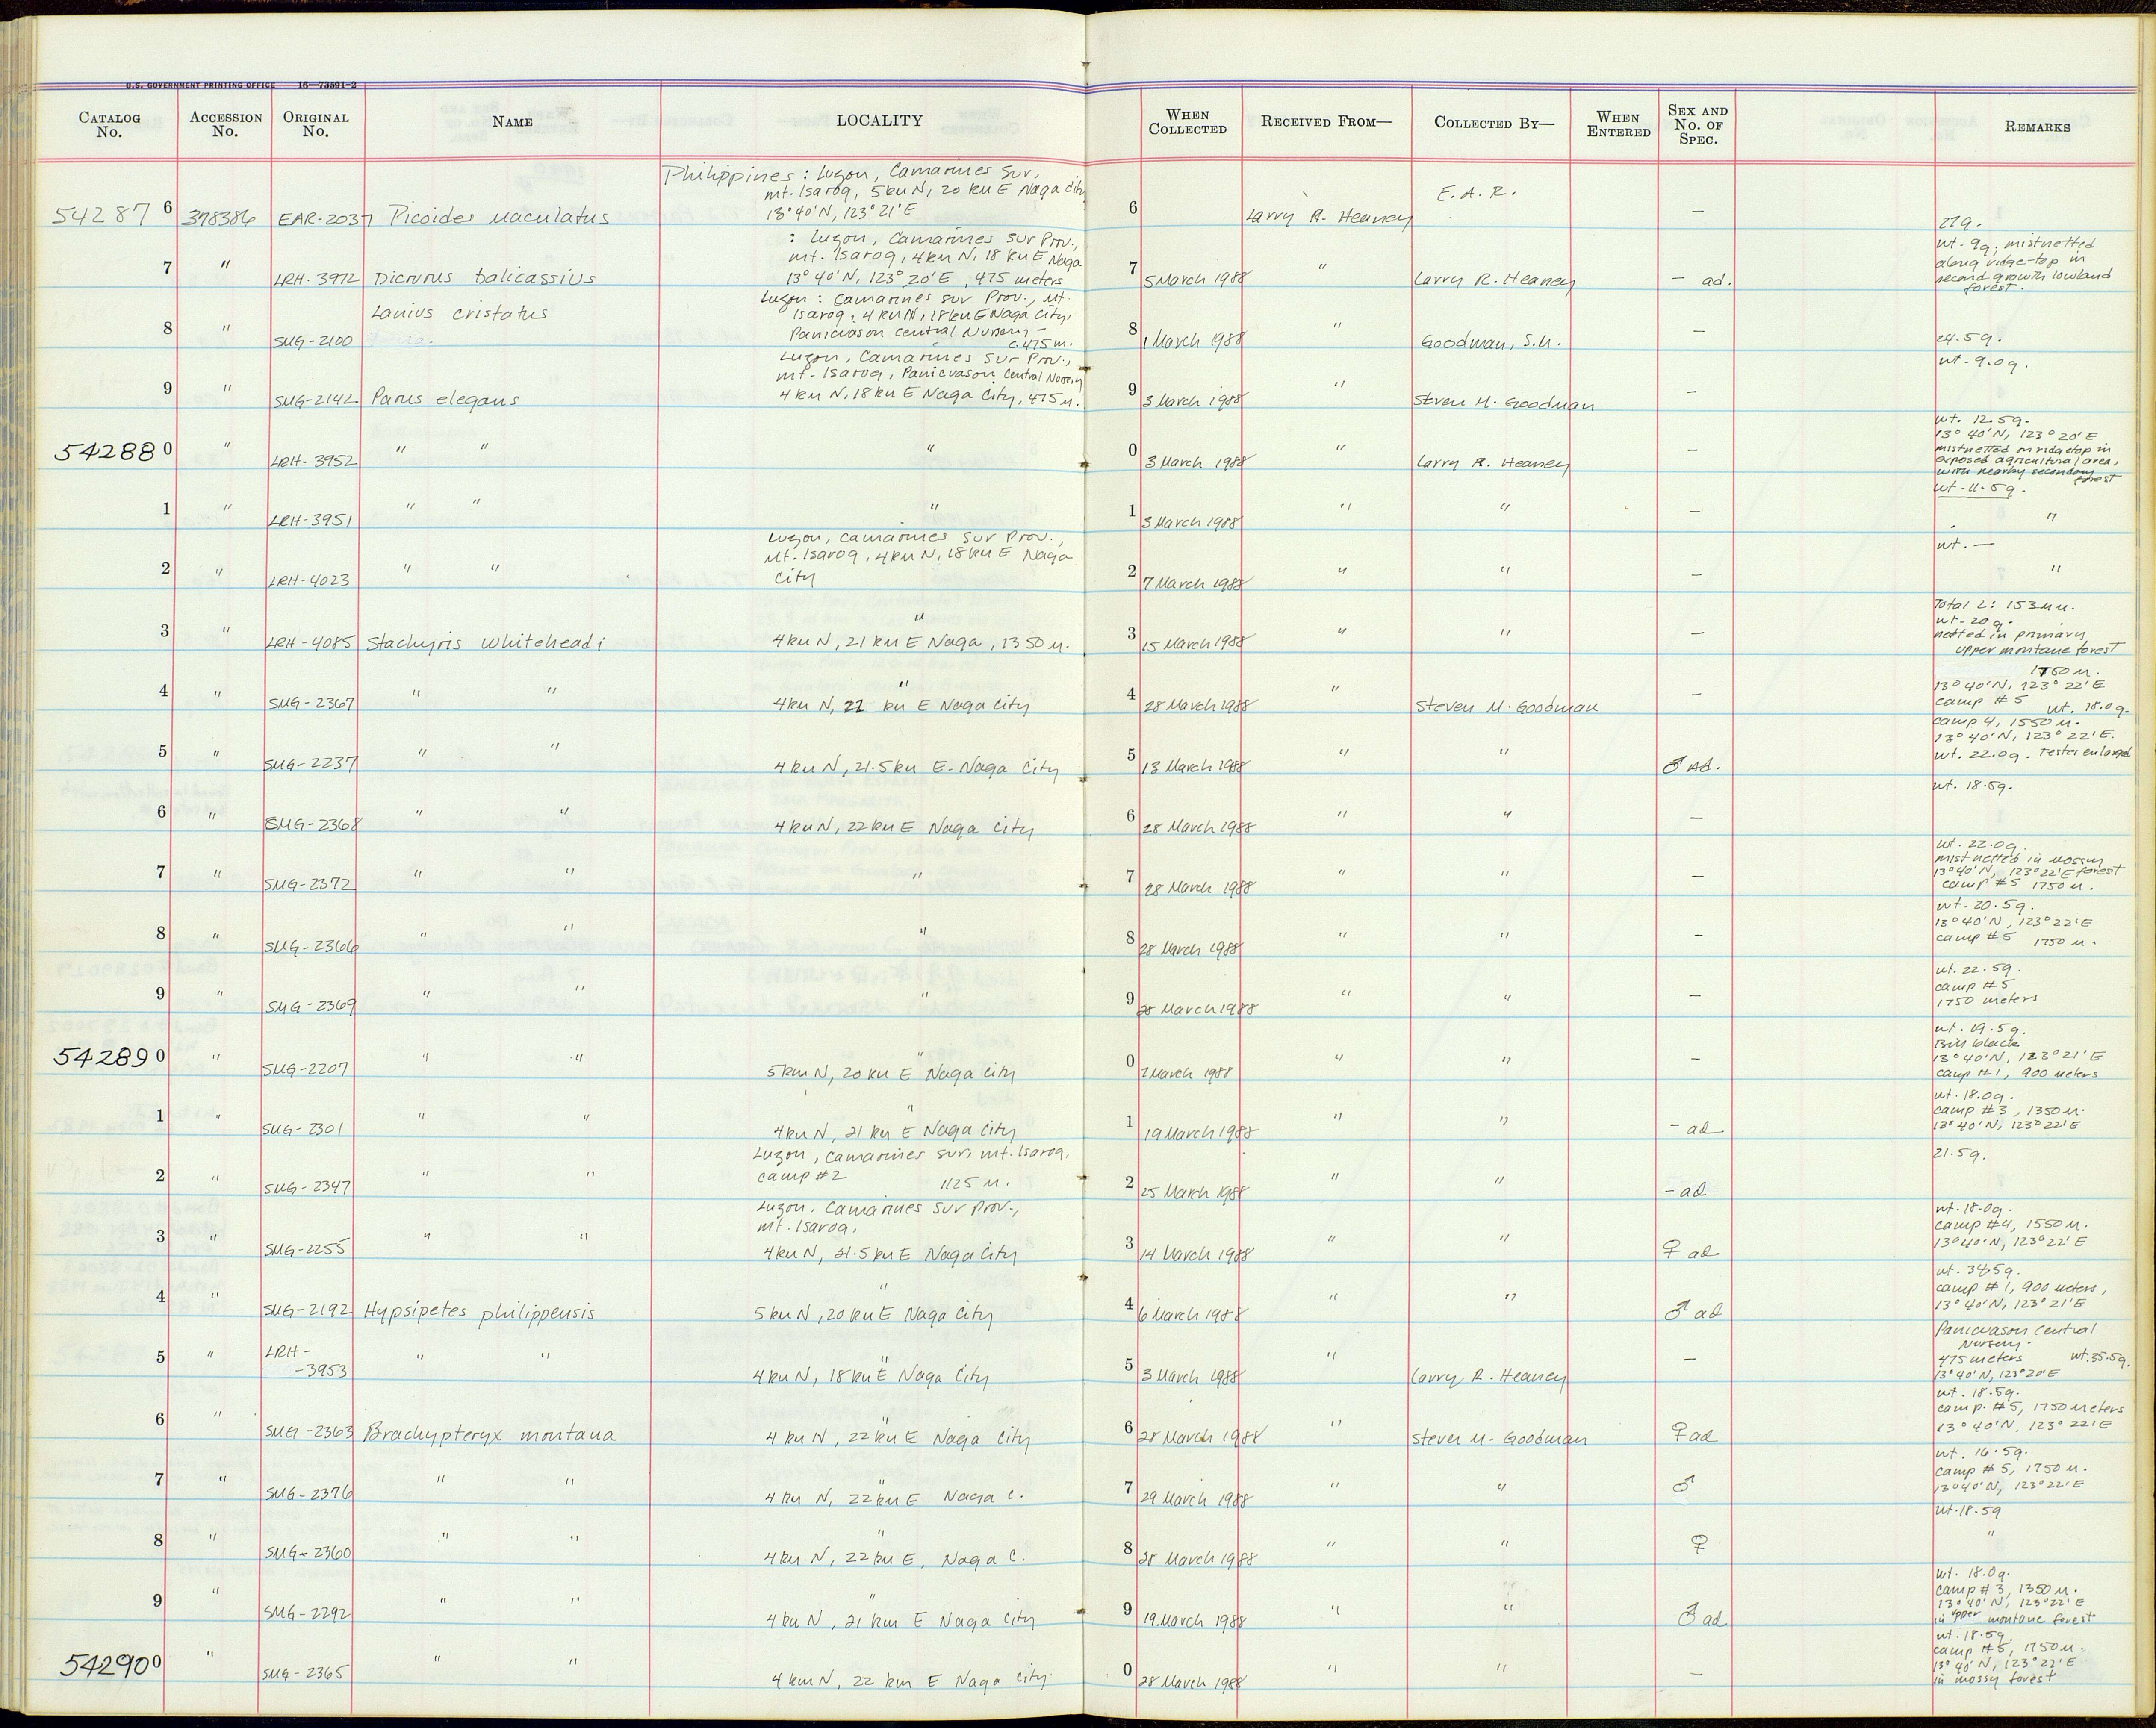 U.S. GOVERNMENT PRINTING OFFICE 16—73591-2
CATALOG No. ACCESSION No. ORIGINAL No. NAME LOCALITY WHEN COLLECTED RECEIVED FROM— COLLECTED BY— WHEN ENTERED SEX AND No. OF SPEC. REMARKS
Philippines: Luzon, Camarines Sur,
mt. Isarog, 5 km N, 20 km E Naga City
542876 378386 EAR-2037 Picoides maculatus 13°40'N, 123°21'E 6 Larry R. Heaney E.A.R. — 27g.
: Luzon, Camarines Sur Prov.,
mt. Isarog, 4 km N, 18 km E Naga
7 " LRH-3972 Dicrurus balicassius 13°40'N, 123°20'E, 475 meters 7 5 March 1988 " Larry R. Heaney — ad. wt-9g; mistnetted
along ridge-top in
second growth lowland
forest.
Luzon: Camarines Sur Prov., Mt.
Isarog, 4 km N, 18 km E Naga City,
Panicuason Central Nursery -
c.475 m.
8 " SMG-2100 Lanius cristatus 8 1 March 1988 " Goodman, S.M. — 24.5g.
Luzon, Camarines Sur Prov.,
mt. Isarog, Panicuason Central Nursery
4 km N, 18 km E Naga City, 475 m.
9 " SMG-2142 Parus elegans 9 3 March 1988 " Steven M. Goodman — wt-9.0g.
542880 " LRH-3952 " " " 0 3 March 1988 " Larry R. Heaney — wt. 12.5g.
13°40'N, 123°20'E
mistnetted on ridgetop in
exposed agricultural area,
with nearby secondary
forest
1 " LRH-3951 " " " 1 3 March 1988 " " — wt-11.5g.
"
Luzon, Camarines Sur Prov.,
Mt. Isarog, 4 km N, 18 km E Naga
City
2 " LRH-4023 " " 2 7 March 1988 " " — wt.—
"
3 " LRH-4085 Stachyris whiteheadi "
4 km N, 21 km E Naga, 1350 m. 3 15 March 1988 " " — Total L: 153mm.
wt-20g.
netted in primary
upper montane forest
4 " SMG-2367 " " "
4 km N, 22 km E Naga City 4 28 March 1988 " Steven M. Goodman — 1750 m.
13°40'N, 123°22'E
camp #5 wt. 18.0g.
5 " SMG-2237 " " 4 km N, 21.5 km E. Naga City 5 13 March 1988 " " ♂ Ad. camp 4, 1550 m.
13°40'N, 123°22'E.
wt. 22.0g. Testes enlarged
6 " SMG-2368 " " 4 km N, 22 km E Naga City 6 28 March 1988 " " — wt. 18.5g.
7 " SMG-2372 " " " 7 28 March 1988 " " — wt. 22.0g.
mistnetted in mossy
13°40'N, 123°22'E forest
camp #5 1750 m.
8 " SMG-2366 " " " 8 28 March 1988 " " — wt. 20.5g.
13°40'N, 123°22'E
camp #5 1750 m.
9 " SMG-2369 " " " 9 28 March 1988 " " — wt. 22.5g.
camp #5
1750 meters
542890 " SMG-2207 " " "
5 km N, 20 km E Naga City 0 7 March 1988 " " — wt. 19.5g.
Bill black
13°40'N, 123°21'E
camp #1, 900 meters
1 " SMG-2301 " " "
4 km N, 21 km E Naga City 1 19 March 1988 " " — ad wt. 18.0g.
camp #3, 1350 m.
13°40'N, 123°22'E
Luzon, Camarines Sur, mt. Isarog,
camp #2 1125 m.
2 " SMG-2347 " " 2 25 March 1988 " " — ad 21.5g.
Luzon, Camarines Sur Prov.,
mt. Isarog,
3 " SMG-2255 " " 4 km N, 21.5 km E Naga City 3 14 March 1988 " " ♀ ad wt. 18.0g.
camp #4, 1550 m.
13°40'N, 123°22'E
4 " SMG-2192 Hypsipetes philippensis "
5 km N, 20 km E Naga City 4 6 March 1988 " " ♂ ad wt. 34.5g.
camp #1, 900 meters,
13°40'N, 123°21'E
5 " LRH-
-3953 " " "
4 km N, 18 km E Naga City 5 3 March 1988 " Larry R. Heaney — Panicuason Central
Nursery.
475 meters wt. 35.5g.
13°40'N, 123°20'E
6 " SMG-2363 Brachypteryx montana "
4 km N, 22 km E Naga City 6 28 March 1988 " Steven M. Goodman ♀ ad wt. 18.5g.
camp. #5, 1750 meters
13°40'N, 123°22'E
7 " SMG-2376 " " "
4 km N, 22 km E Naga C. 7 29 March 1988 " " ♂ wt. 16.5g.
camp #5, 1750 m.
13°40'N, 123°22'E
8 " SMG-2360 " " "
4 km N, 22 km E, Naga C. 8 28 March 1988 " " ♀ wt-18.5g
"
9 " SMG-2292 " " "
4 km N, 21 km E Naga City 9 19 March 1988 " " ♂ ad wt. 18.0g.
camp #3, 1350 m.
13°40'N, 123°22'E
in upper montane forest
542900 " SMG-2365 " " 4 km N, 22 km E Naga City 0 28 March 1988 " " — wt. 18.5g.
camp #5, 1750 m.
13°40'N, 123°22'E
in mossy forest